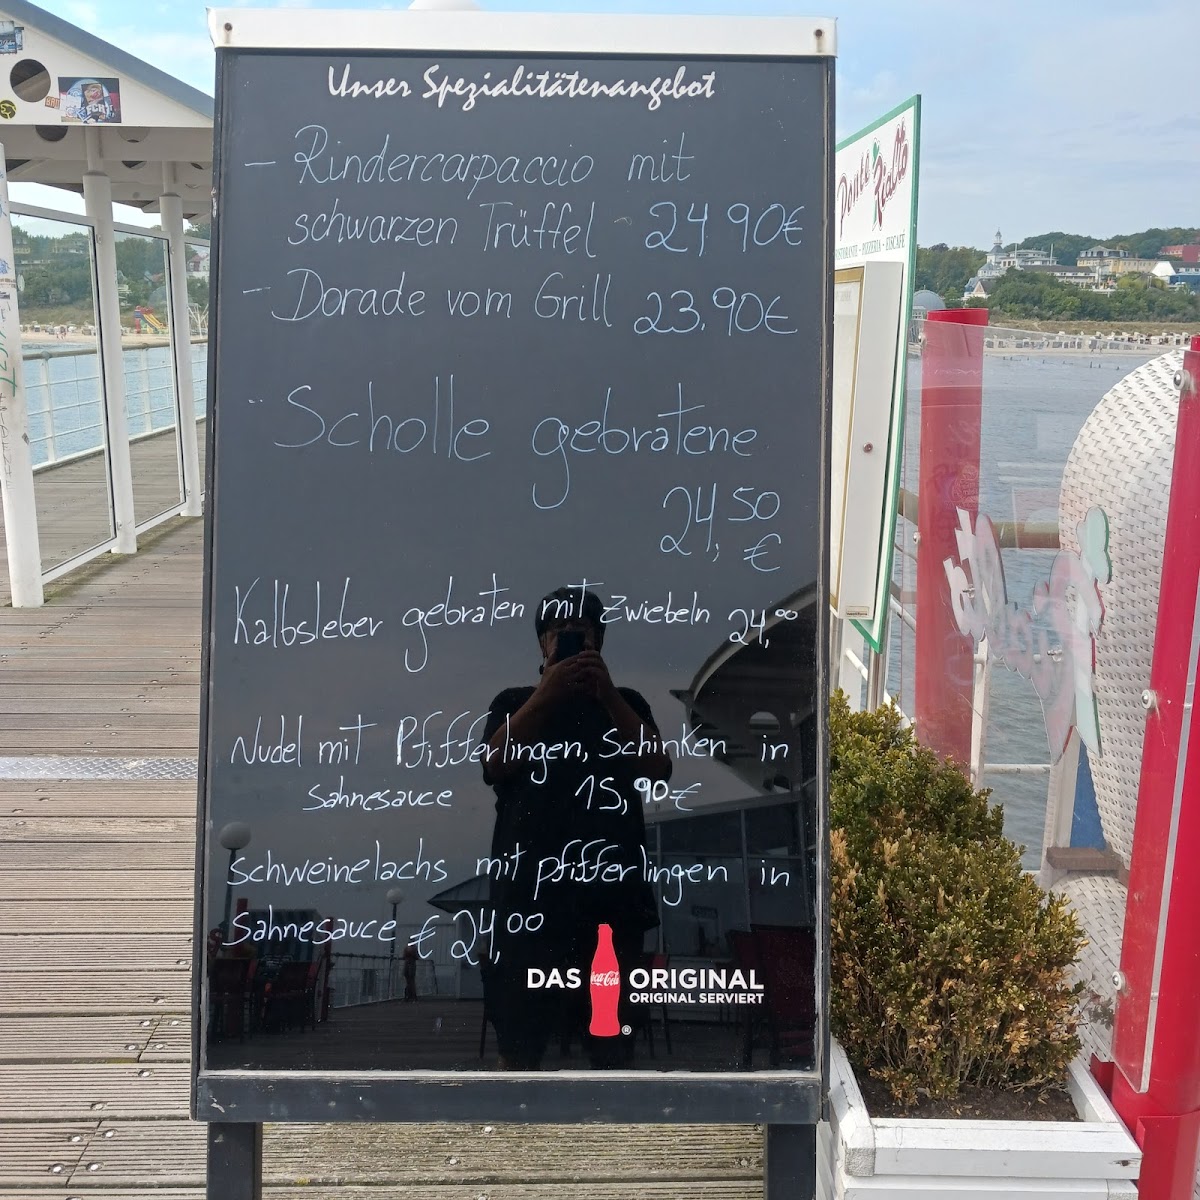 Unser Spezialitätenangebot
- Rindercarpaccio mit
schwarzen Trüffel - 24 90€
- Dorade vom Grill 23.90€
- Scholle gebratene
24,50
€
Kalbsleber gebraten mit zwiebeln 24,00
Nudel mit Pfifferlingen, Schinken in
Sahnesauce 15,90€
Schweinelachs mit pfifferlingen in
Sahnesauce € 24,00
DAS Coca-Cola ORIGINAL
ORIGINAL SERVIERT
®
Ponte Rialto
RISTORANTE - PIZZERIA - EISCAFE